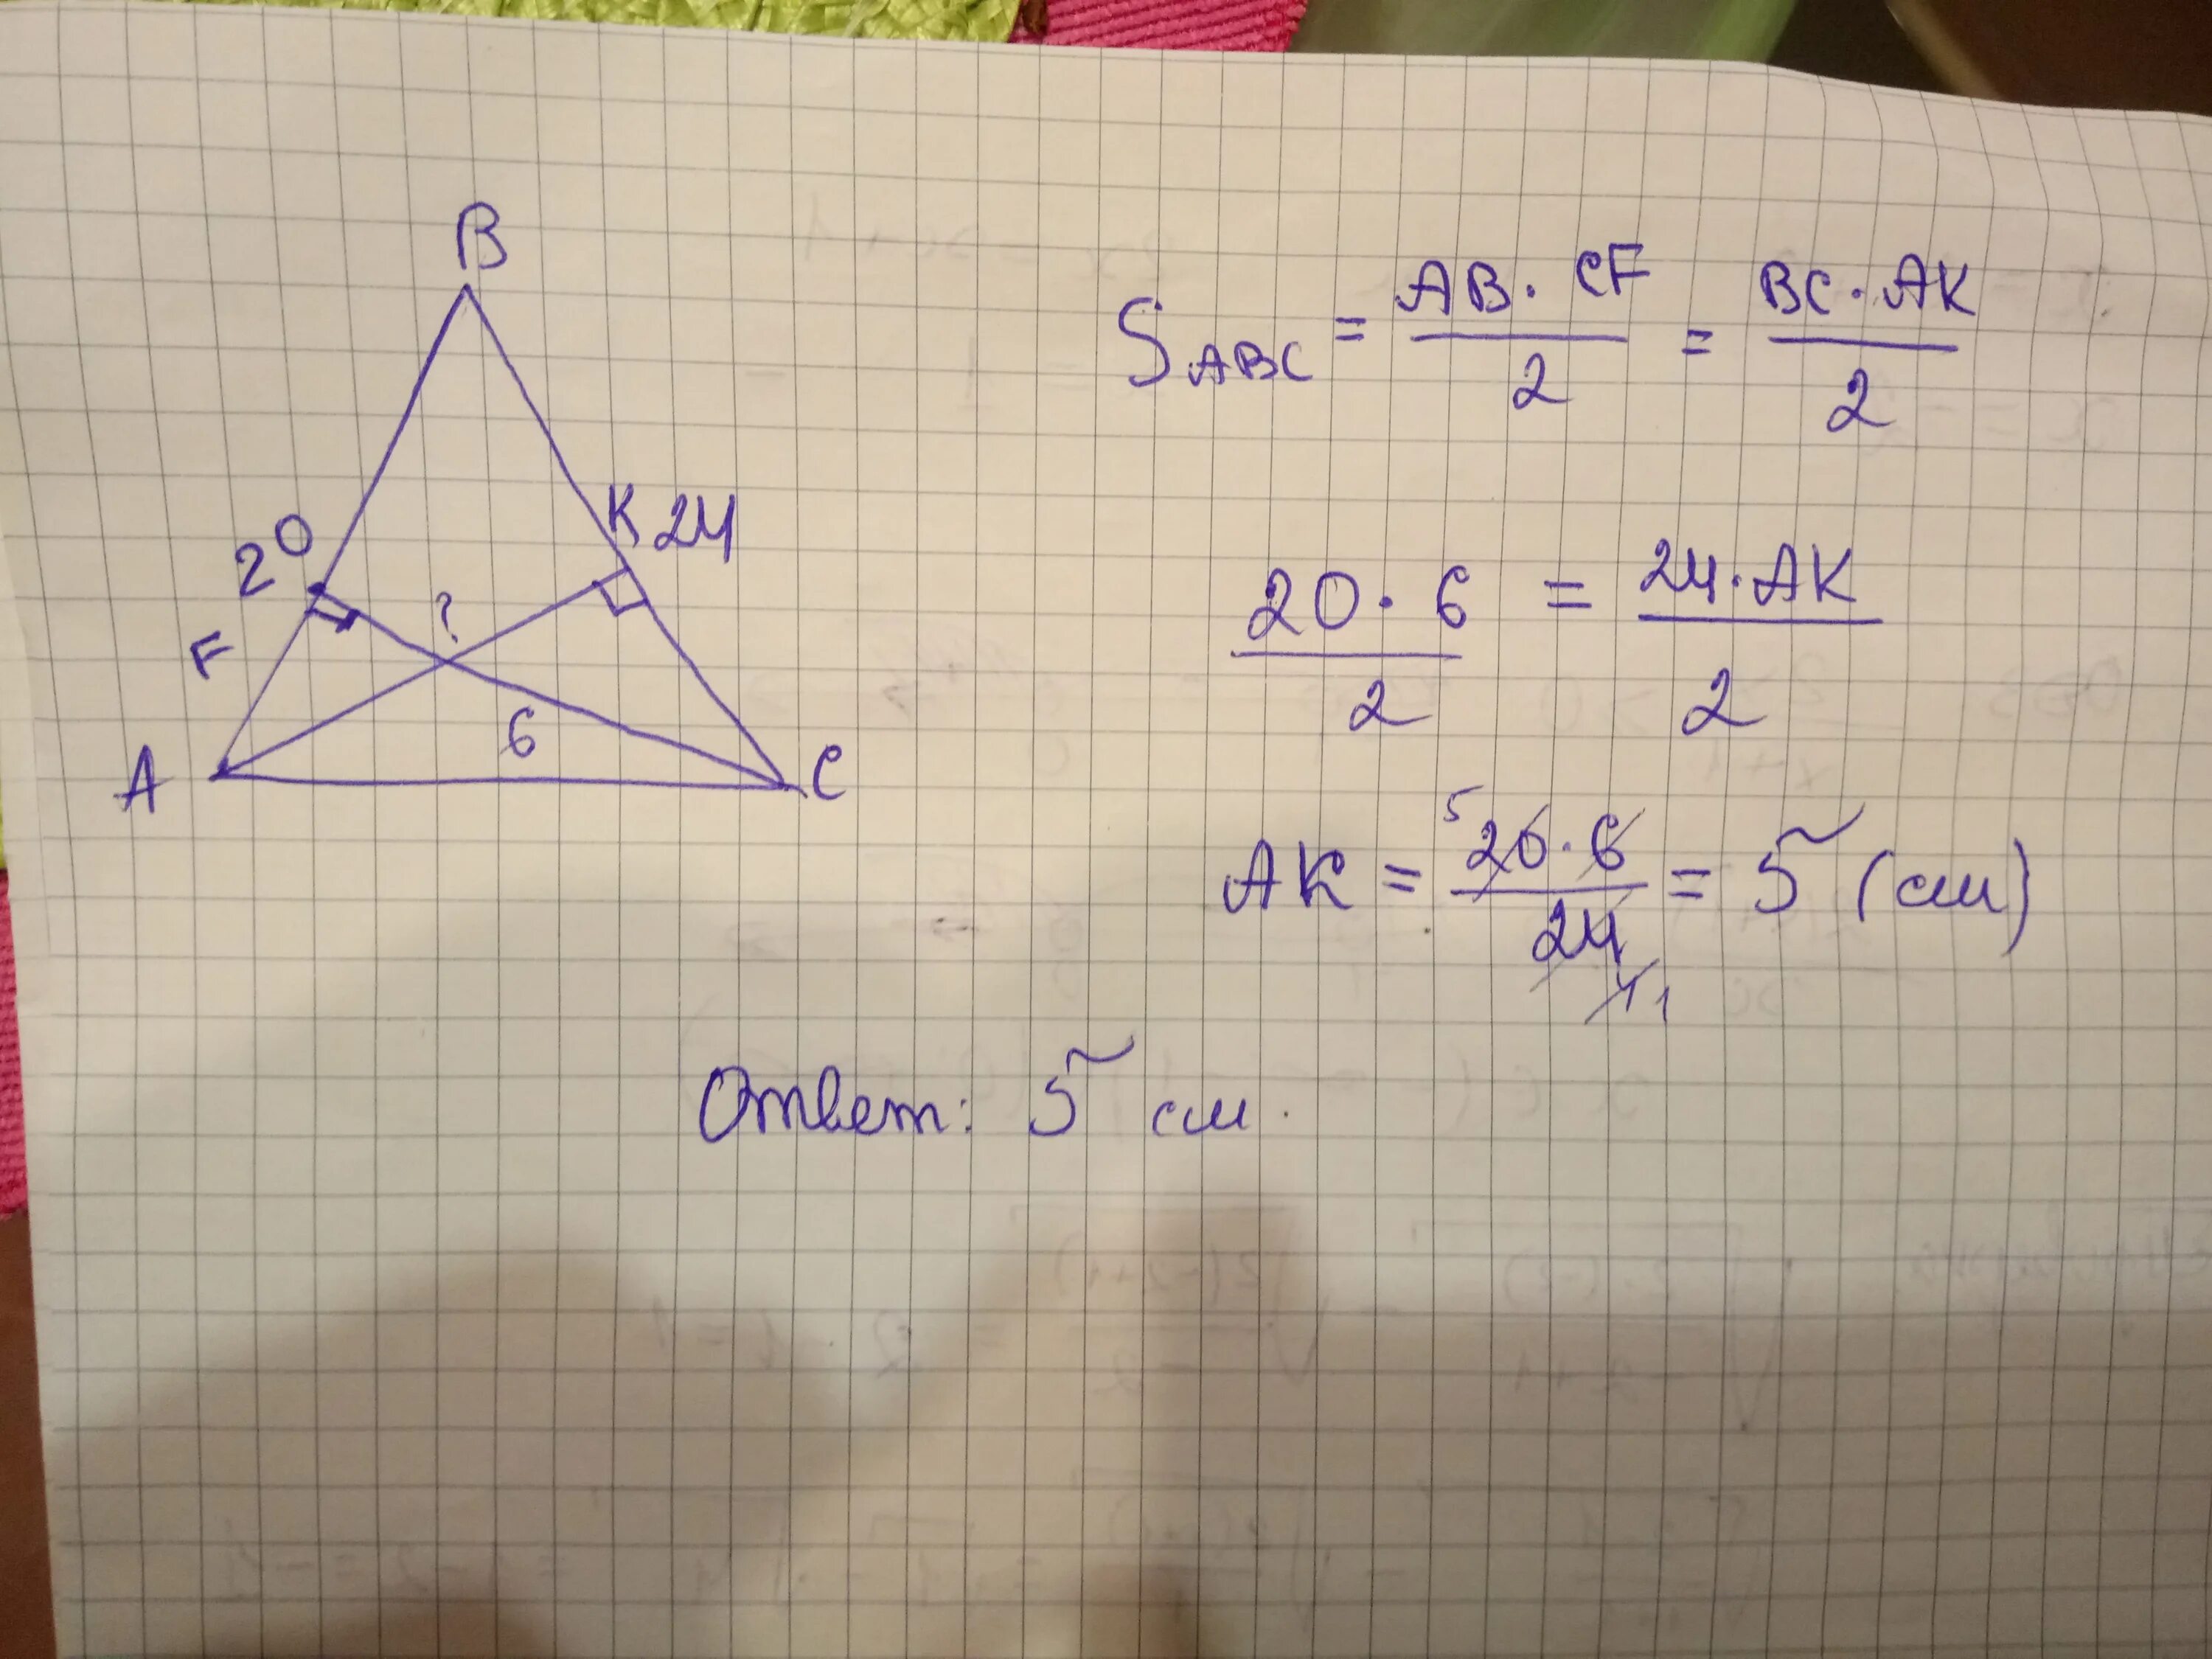 B
20
K 24
F
?
6
A
C
S ABC = AB · CF / 2 = BC · AK / 2
20 · 6 / 2 = 24 · AK / 2
AK = 5 20 · 6 / 24 4 1 = 5 (см)
Ответ: 5 см.